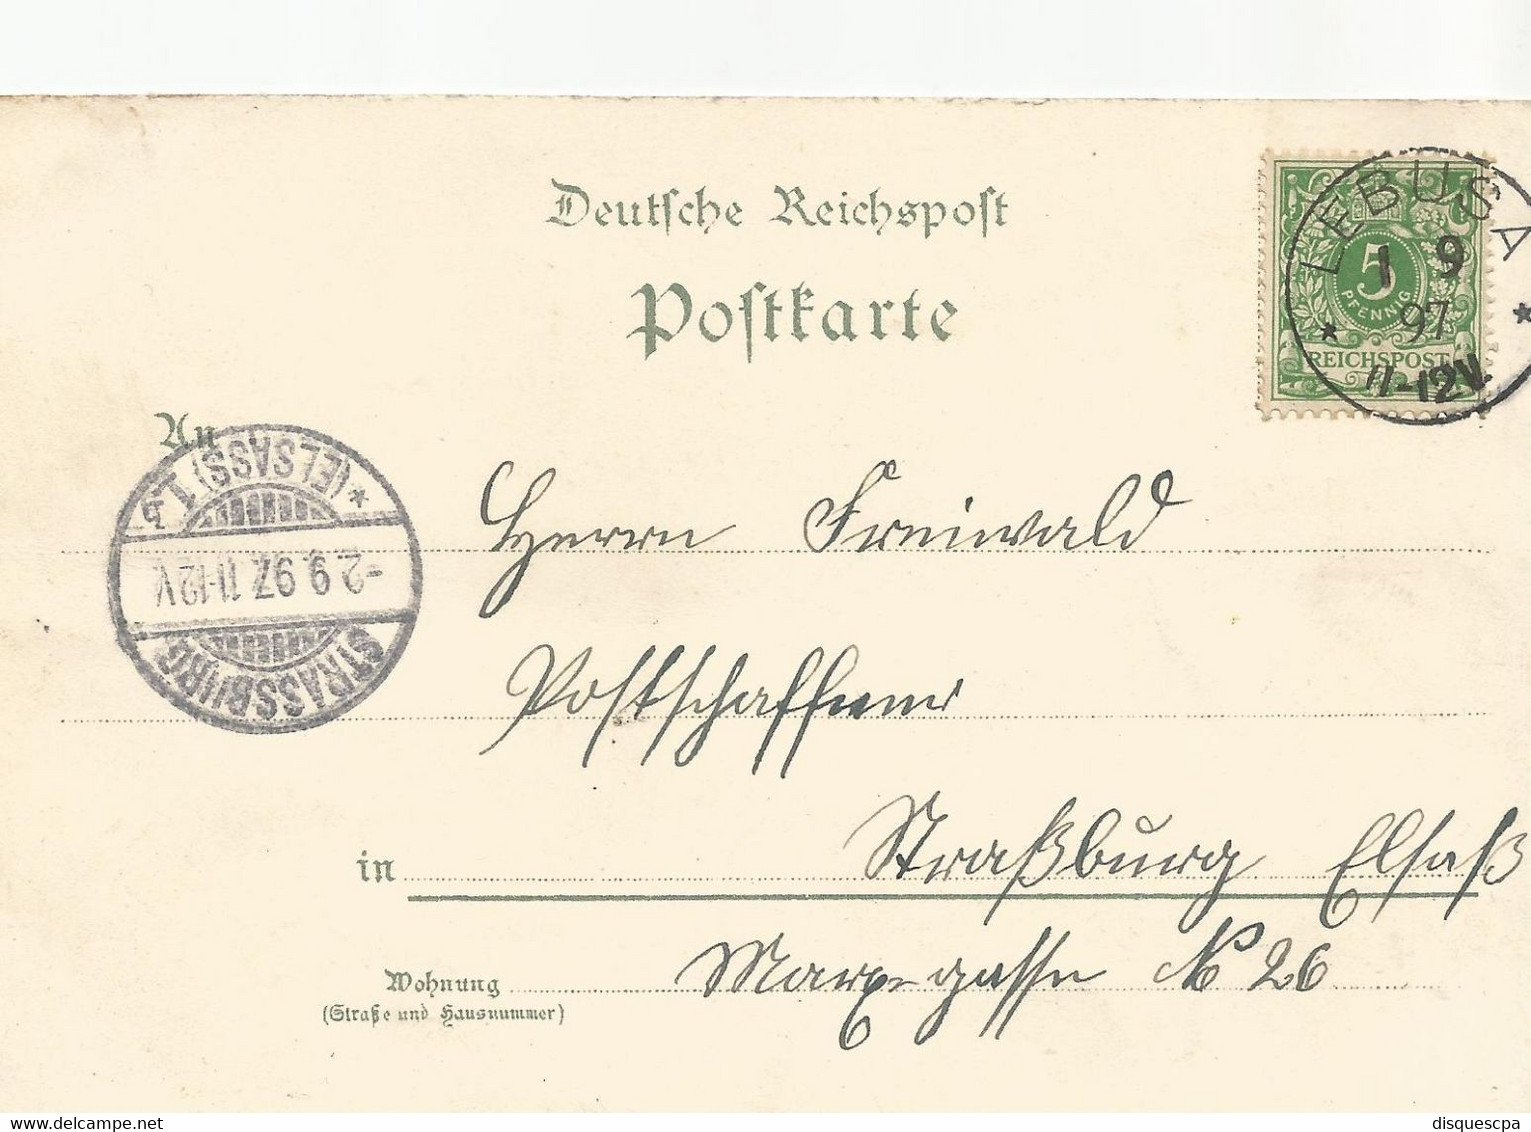 Deutsche Reichspost
Postkarte
LEBUSA
1 9
97
11-12V.
5
PFENNIG
REICHSPOST
An
STRASSBURG
2.9.97. 11-12V.
* (ELSASS) 1.
Herrn Freiwald
Postschaffner
in Straßburg Elsaß
Wohnung Marx-gasse No 26
(Straße und Hausnummer)
disquescpa